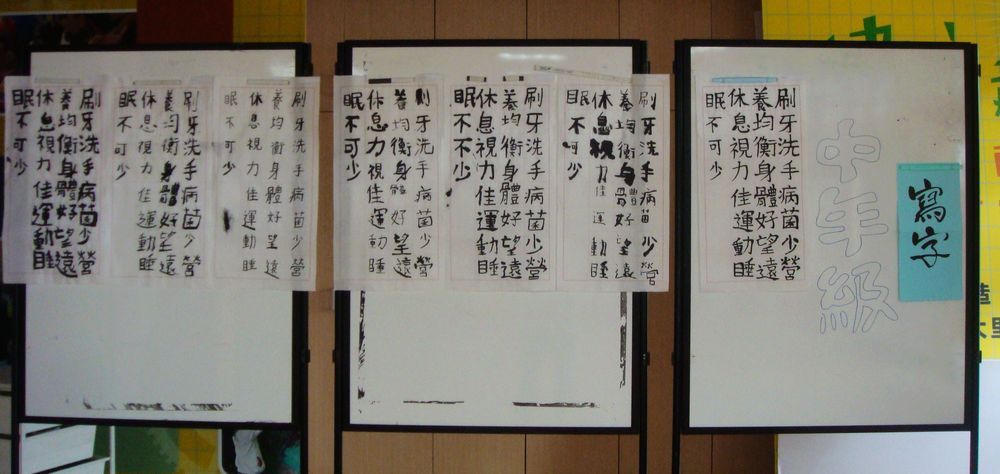 寫字
中年級
刷牙洗手病菌少營
養均衡身體好望遠
休息視力佳運動睡
眠不可少
刷牙洗手病菌少營
養均衡身體好望遠
休息視力佳運動睡
眠不可少
刷牙洗手病菌少營
養均衡身體好望遠
休息視力佳運動睡
眠不可少
刷牙洗手病菌少營
養均衡身體好望遠
休息力佳運動睡
眠不可少
刷牙洗手病菌少營
養均衡身體好望遠
休息視力佳運動睡
眠不可少
刷牙洗手病菌少營
養均衡身體好望遠
休息視力佳運動睡
眠不可少
刷牙洗手病菌少營
養均衡身體好望遠
休息視力佳運動睡
眠不可少